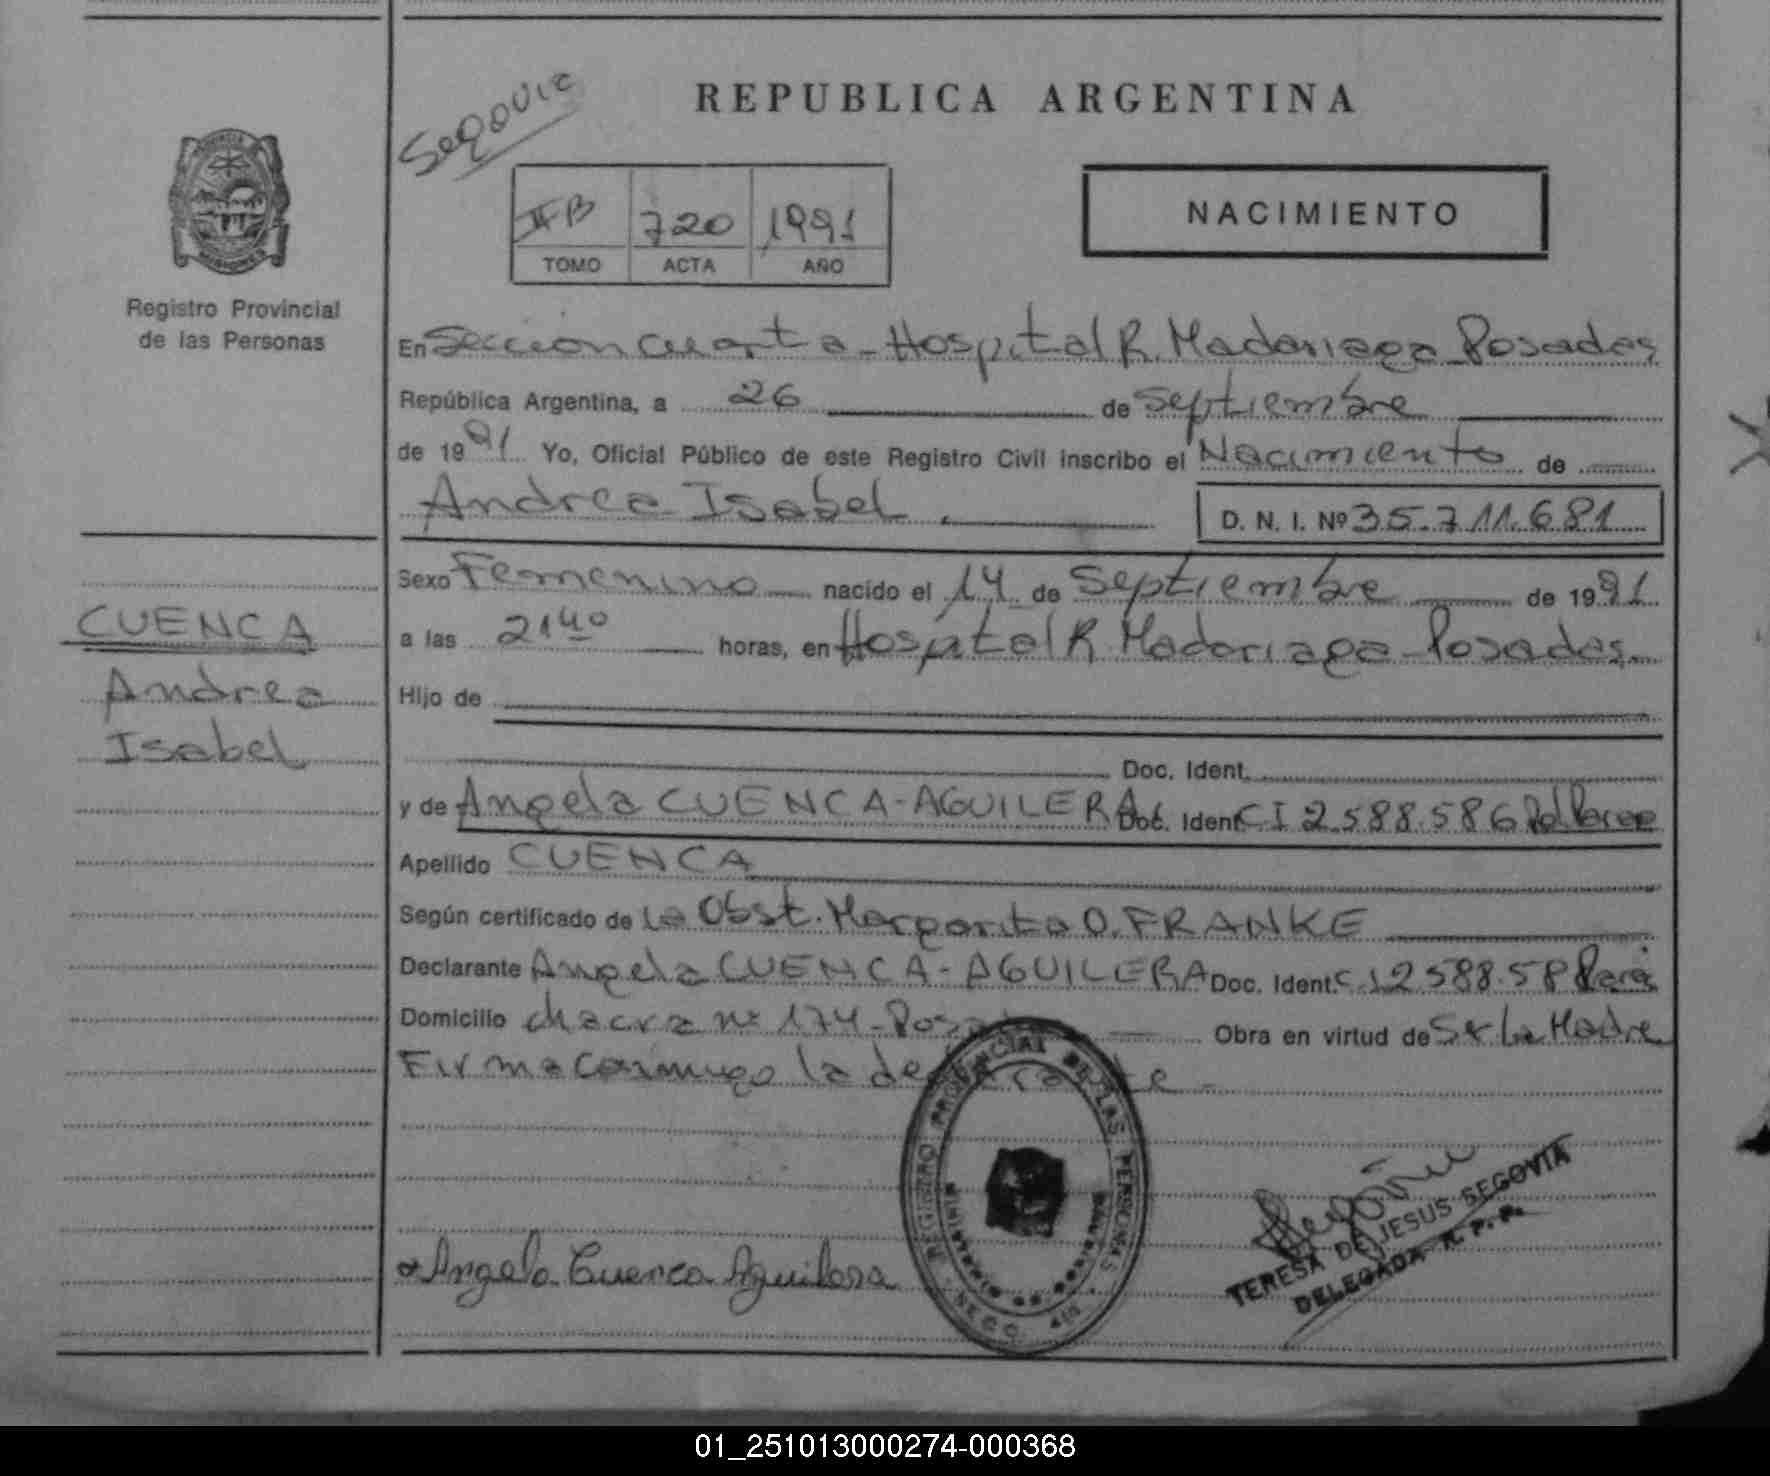 Segovia
REPUBLICA ARGENTINA
IIB 720 1991
TOMO ACTA AÑO
NACIMIENTO
Registro Provincial
de las Personas
En Seccion cuarta - Hospital R. Madariaga Posadas
República Argentina, a 26 de Septiembre
de 1991 Yo, Oficial Público de este Registro Civil inscribo el Nacimiento de
Andrea Isabel D. N. I. Nº 35.711.681
Sexo Femenino nacido el 14 de Septiembre de 1991
a las 21 40 horas, en Hospital R. Madariaga Posadas.
Hijo de
Doc. Ident.
y de Angela CUENCA-AGUILERA Doc. Ident. CI 2.588.586 Pol
Apellido CUENCA
Según certificado de La Obst. Margarita O. FRANKE
Declarante Angela CUENCA-AGUILERA Doc. Ident. C.I 2588.58
Domicilio chacra nº 174-Posadas Obra en virtud de Ser La Madre
Firma conmigo la declarante
CUENCA
Andrea
Isabel
REGISTRO PROVINCIAL DE LAS PERSONAS
Angela Cuenca Aguilera
TERESA DE JESUS SEGOVIA
DELEGADA R. P. P.
01_251013000274-000368